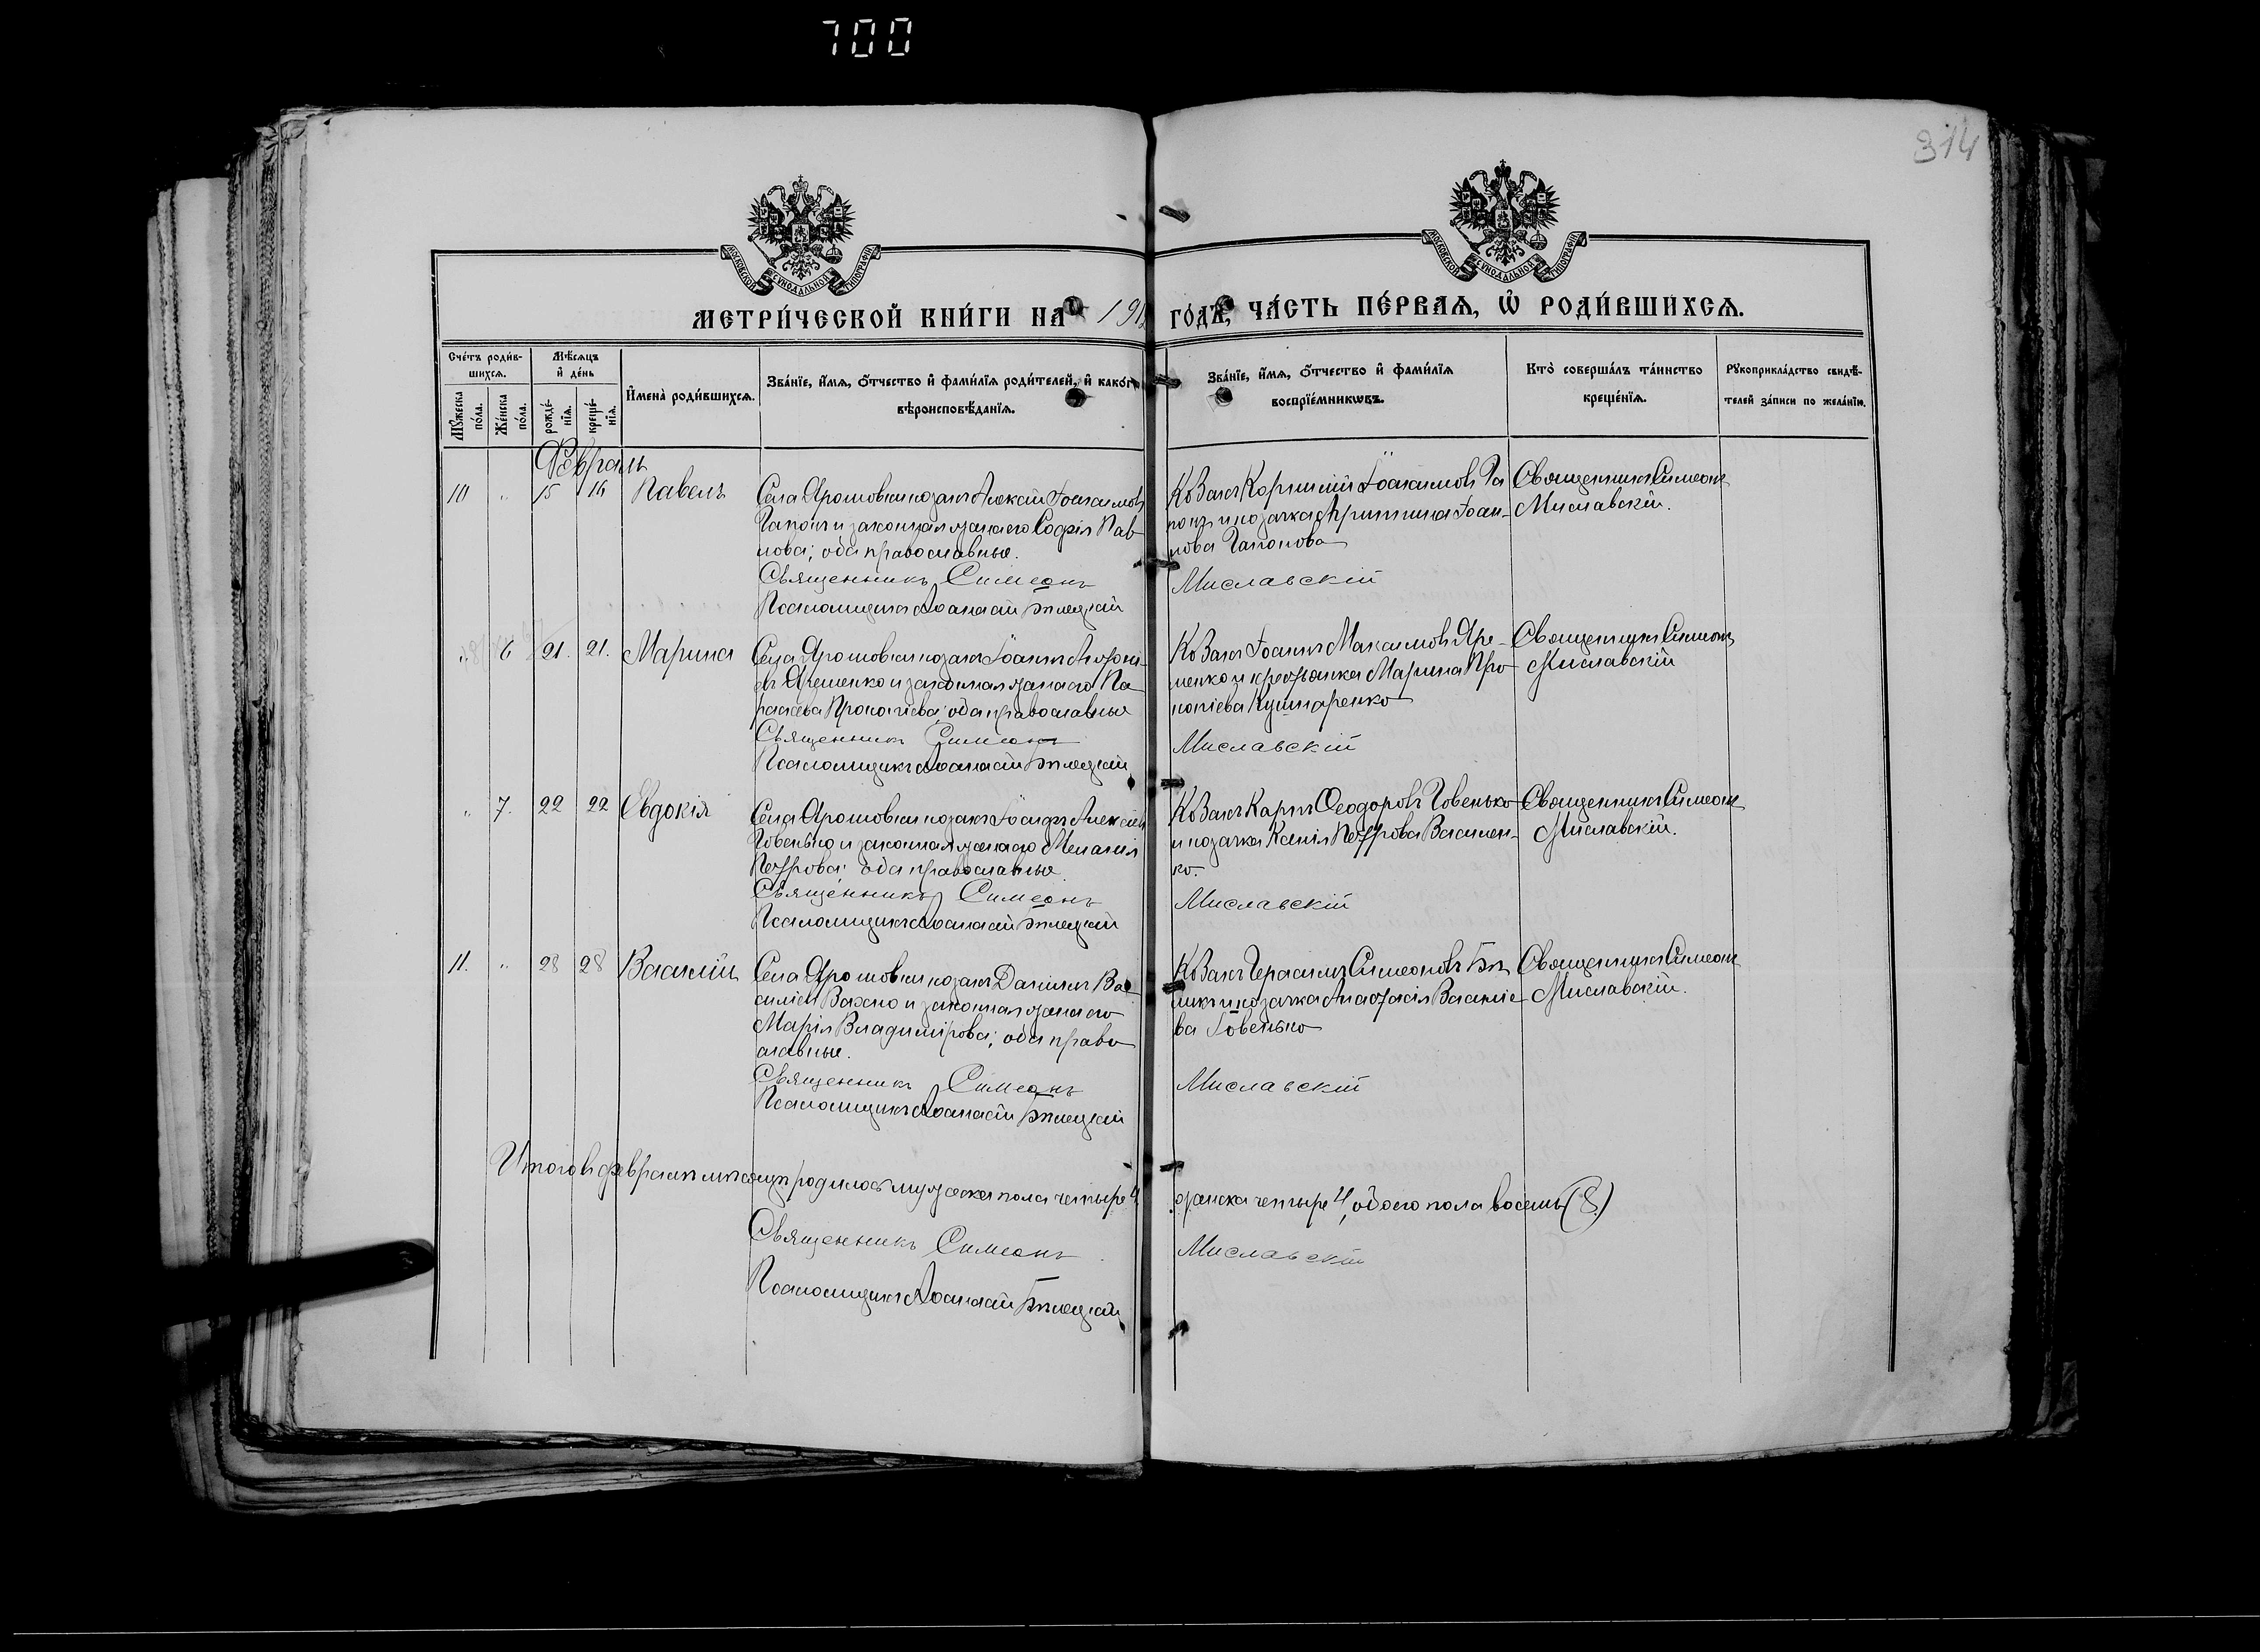 700
314
МОСКОВСКОЙ СѴНОДАЛЬНОЙ ТИПОГРАФІИ
МОСКОВСКОЙ СѴНОДАЛЬНОЙ ТИПОГРАФІИ
МЕТРИ́ЧЕСКОЙ КНИ́ГИ НА 191 ГО́ДЪ, ЧА́СТЬ ПЕ́РВАѦ, Ѡ РОДИ́ВШИХСѦ.
Сче́тъ роди́в-
шихсѧ.
Мꙋ́жеска по́ла.
Же́нска по́ла.
Мѣ́сѧцъ
и҆ де́нь
рожде́-
нїѧ.
креще́-
нїѧ.
И҆мена̀ роди́вшихсѧ.
Зва́нїе, и҆́мѧ, ѻ҆́тчество и҆ фами́лїѧ роди́телей, и҆ како́гѡ
вѣроисповѣ́данїѧ.
Зва́нїе, и҆́мѧ, ѻ҆́тчество и҆ фами́лїѧ
воспрїе́мникѡвъ.
Кто̀ соверша́лъ та́инство
креще́нїѧ.
Рꙋкоприкла́дство свидѣ́-
телей за́писи по жела́нїю.
Февраль
10 " 15 16 Павелъ
Села Ярошовки козакъ Алексій Іоакимовъ
Гапонъ и законная жена его Софія Пав-
лова; оба православные.
Священникъ Симеонъ
Псаломщикъ Аѳанасій Бѣлецкій
Козакъ Корнилій Іоакимовъ Га
понъ и козачка Христина Іоан-
нова Гапонова
Миславскій
Священникъ Симеонъ
Миславскій.
" 6 21. 21. Марина
Села Ярошовки козакъ Іоаннъ
Яременко и законная жена его Па-
раскева Прокопіева; оба православные
Священникъ Симеонъ
Псаломщикъ Аѳанасій Бѣлецкій
Козакъ Іоаннъ Максимовъ Яре-
менко и крестьянка Марина Про
копіева Кушнаренко
Миславскій
Священникъ Симеонъ
Миславскій
" 7. 22 22 Евдокія
Села Ярошовки козакъ Іосифъ Алексіевъ
Говенько и законная жена его Меланія
Петрова; оба православные
Священникъ Симеонъ
Псаломщикъ Аѳанасій Бѣлецкій
Козакъ Карпъ Ѳеодоровъ Говенько
и козачка Ксенія Петрова Василен-
ко.
Миславскій
Священникъ Симеонъ
Миславскій.
11. " 28 28 Василій
Села Ярошовки козакъ Даніилъ Ва-
силіевъ и законная жена его
Марія Владимірова; оба право
славные.
Священникъ Симеонъ
Псаломщикъ Аѳанасій Бѣлецкій
Козакъ Герасимъ Симеоновъ Бѣ
ликъ и козачка Анастасія Василіе-
ва Говенько
Миславскій
Священникъ Симеонъ
Миславскій.
Итого въ февралѣ мѣсяцѣ родилось мужеска пола четыре 4, женска четыре 4, обоего пола восемь (8.)
Священникъ Симеонъ Миславскій
Псаломщикъ Аѳанасій Бѣлецкій